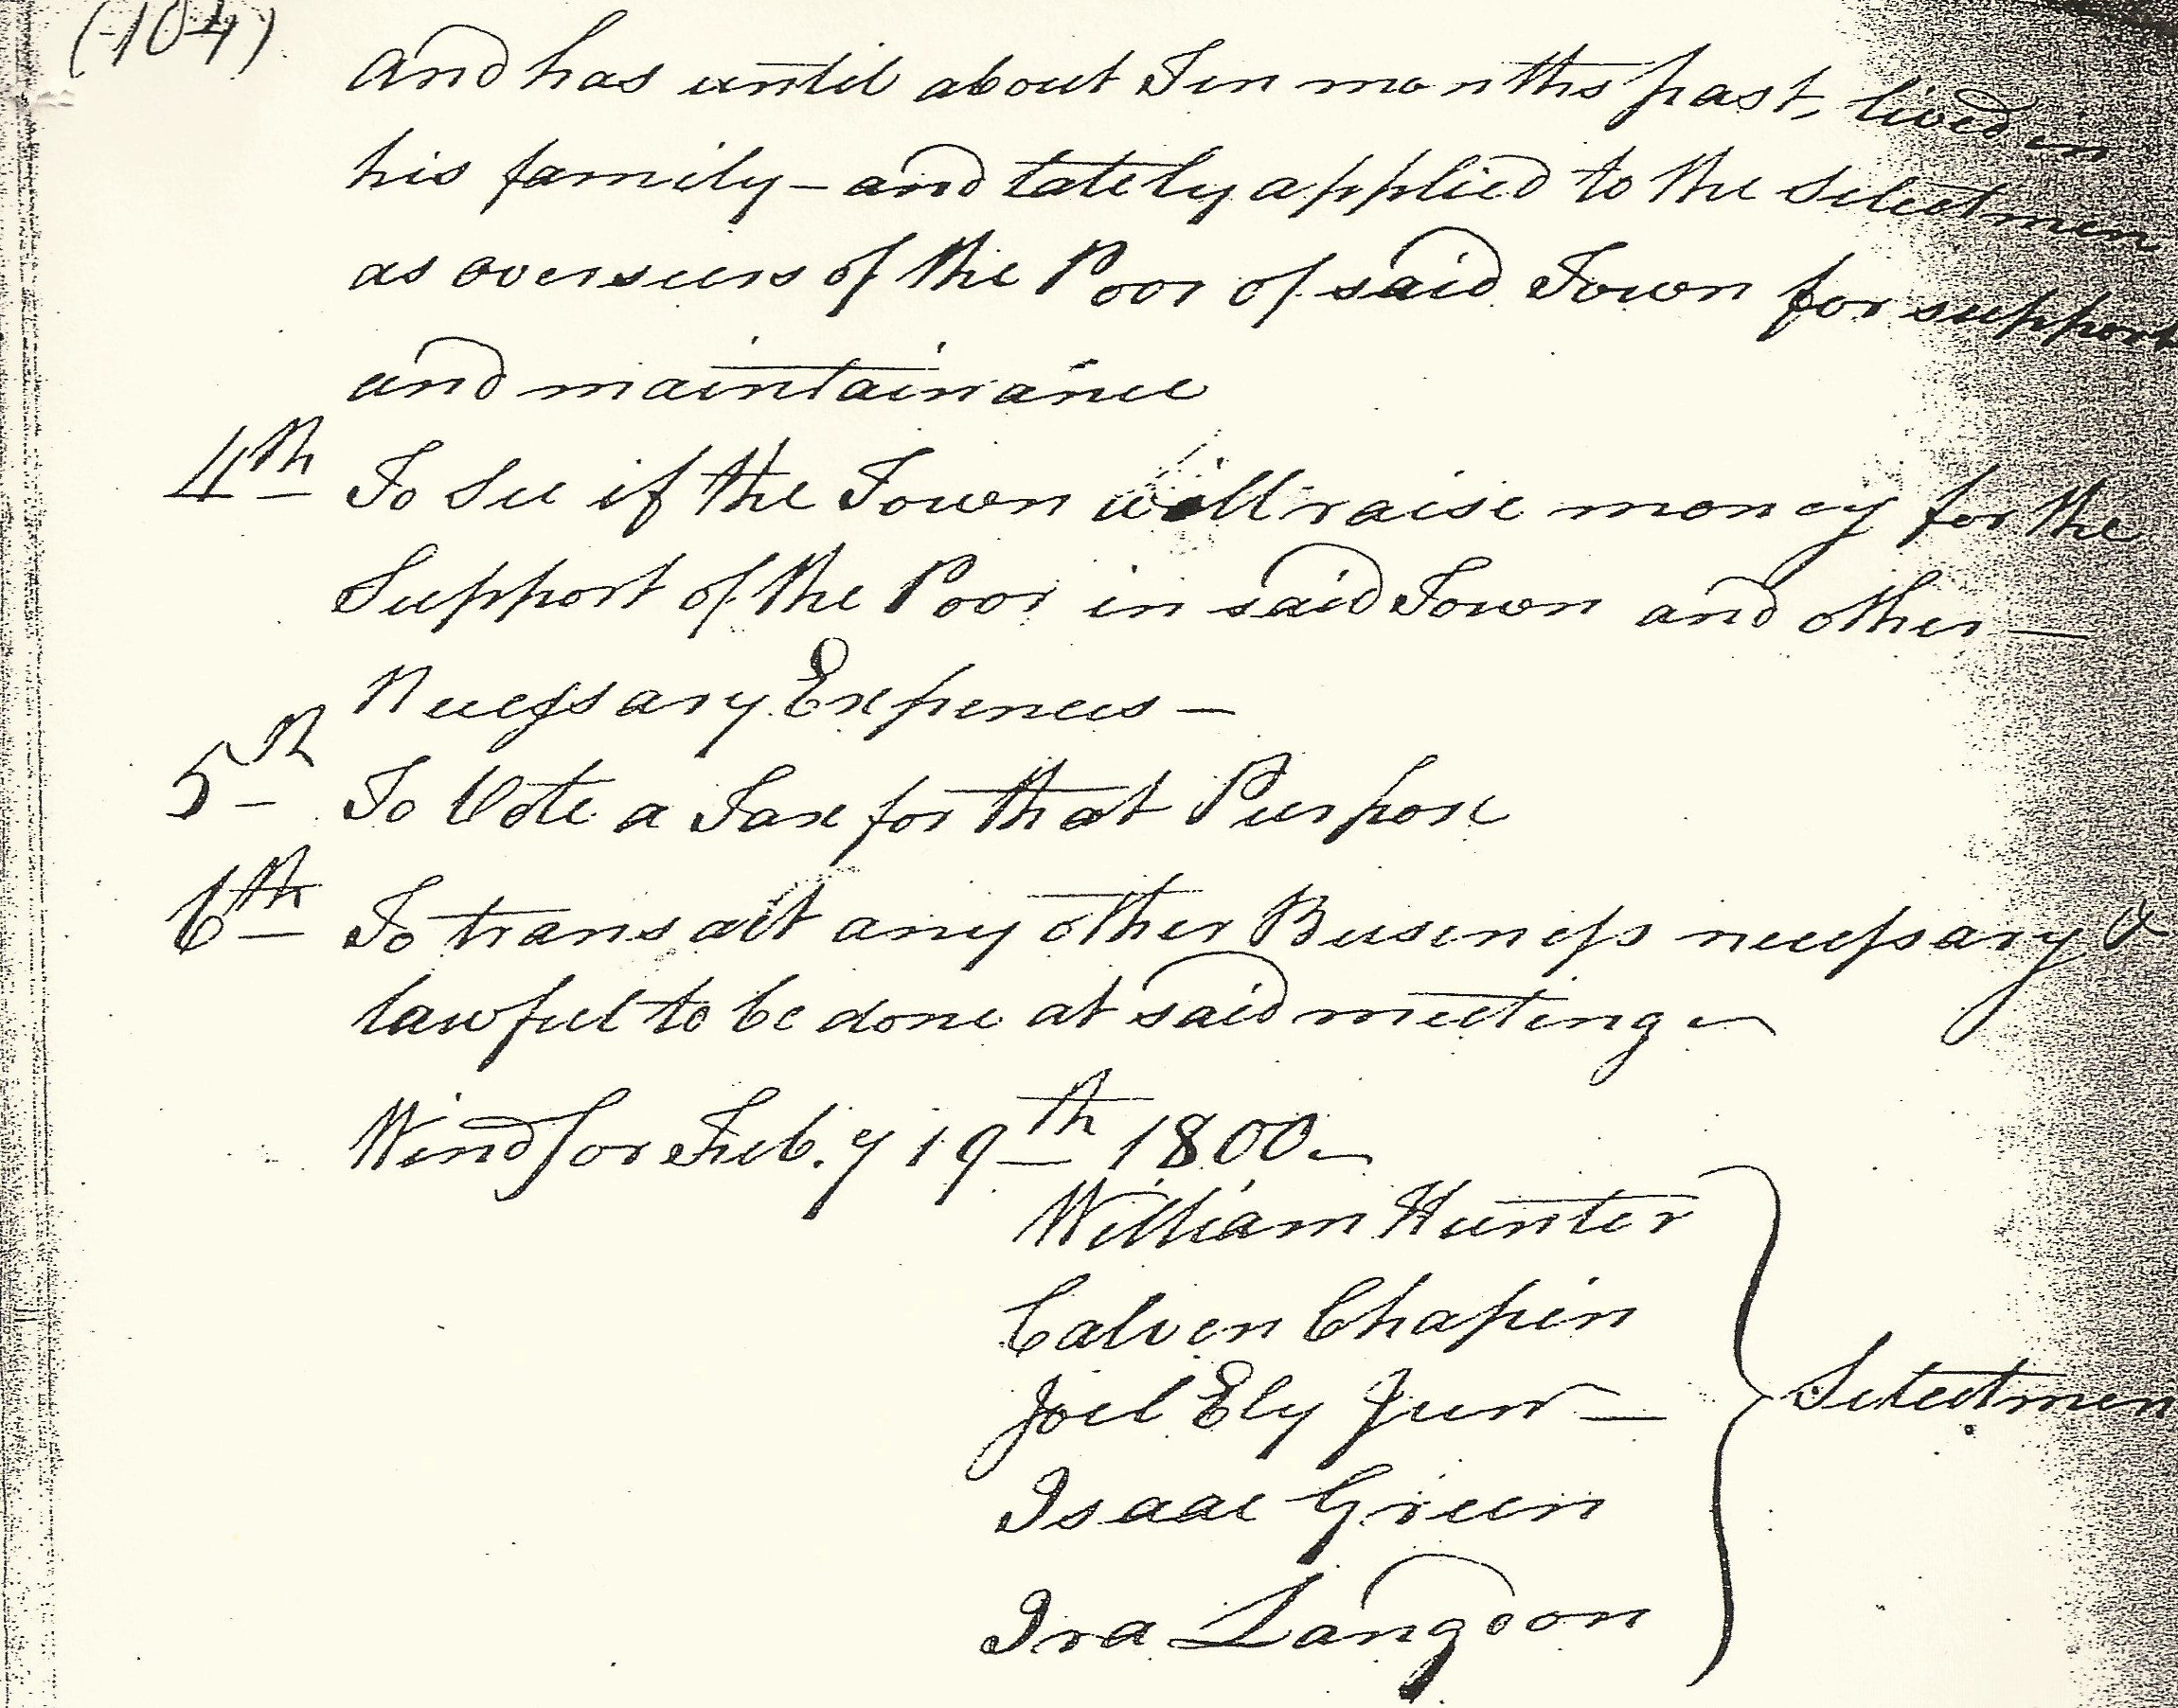 (104)
and has until about Ten months past, lived in
his family – and lately applied to the Selectmen
as overseers of the Poor of said Town for support
and maintainance
4th To See if the Town will raise money for the
Support of the Poor in said Town and other —
Necessary Expences —
5th To Vote a Tax for that Purpose
6th To transact any other Business necessary &
lawful to be done at said meeting
Windsor Feb.y 19th 1800
William Hunter
Calven Chapin
Joel Ely Junr —
Selectmen
Isaac Green
Ira Langdon